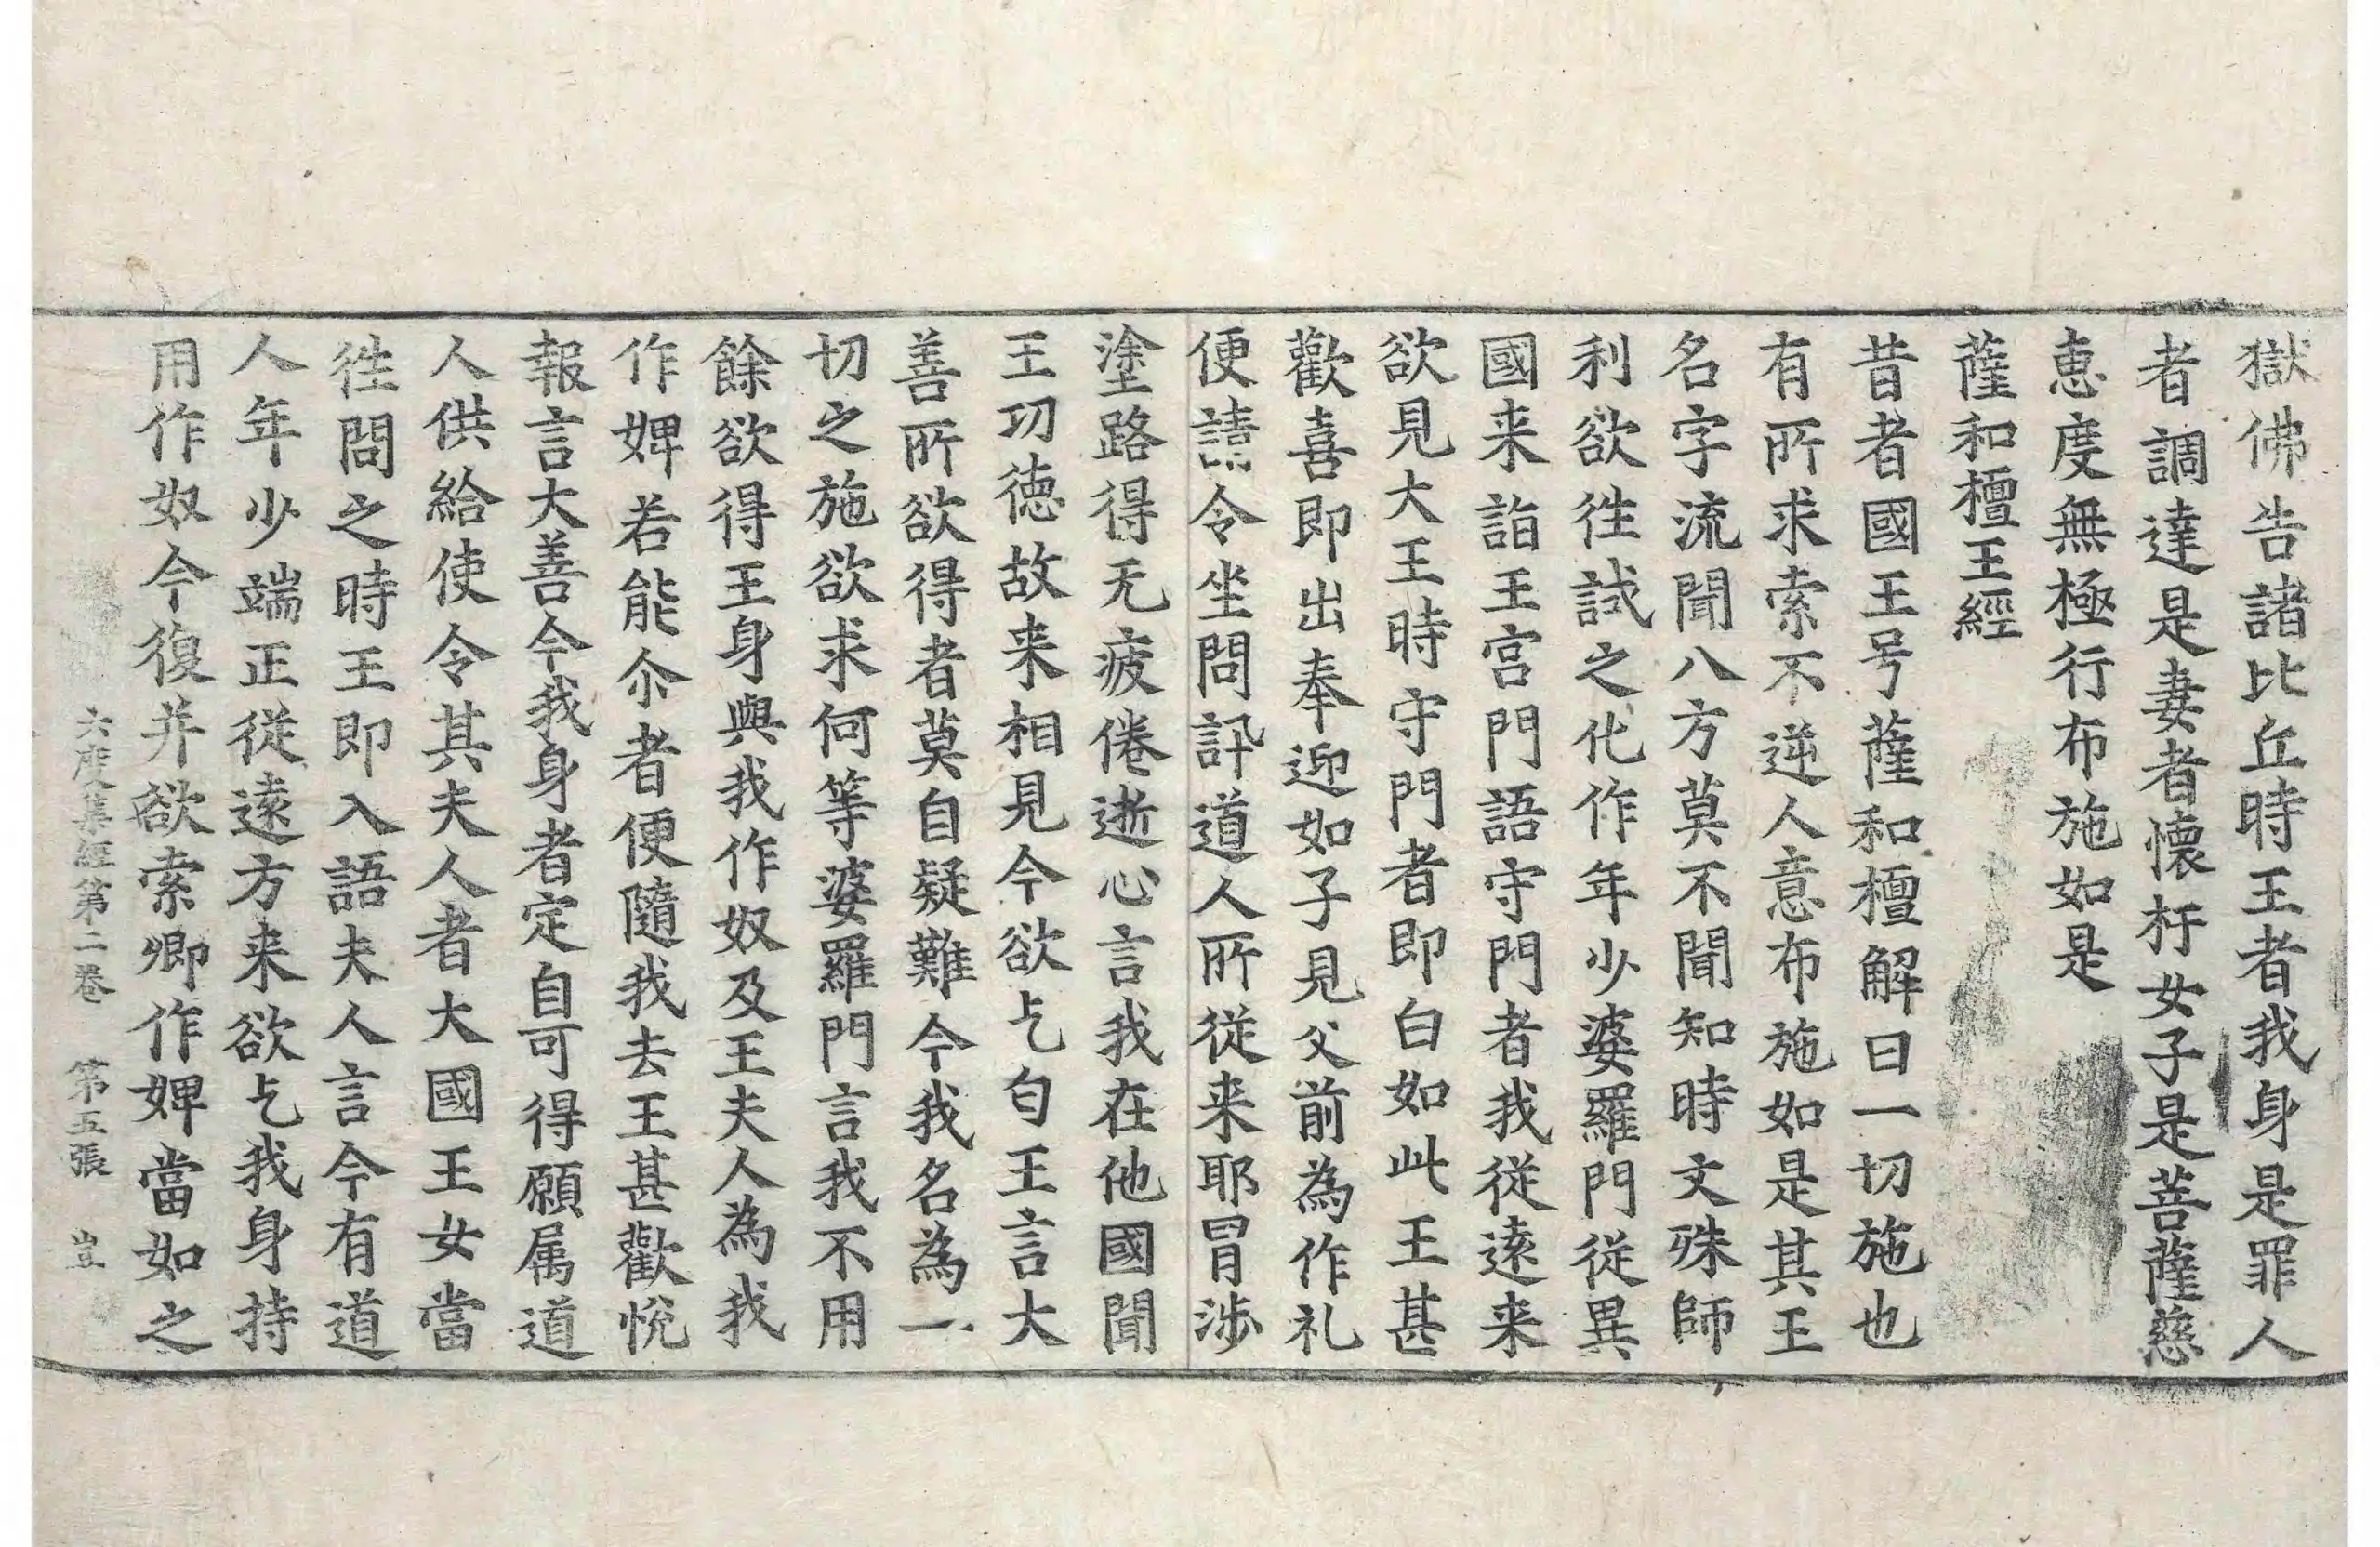 獄佛告諸比丘時王者我身是罪人
者調達是妻者懷杅女子是菩薩慈
恵度無極行布施如是
薩和檀王經
昔者國王号薩和檀解曰一切施也
有所求索不逆人意布施如是其王
名字流聞八方莫不聞知時文殊師
利欲徃試之化作年少婆羅門從異
國来詣王宮門語守門者我從逺来
欲見大王時守門者即白如此王甚
歡喜即出奉迎如子見父前為作礼
便請令坐問訊道人所從来耶冒涉
塗路得无疲倦逝心言我在他國聞
王功德故来相見今欲乞匂王言大
善所欲得者莫自疑難今我名為一
切之施欲求何等婆羅門言我不用
餘欲得王身與我作奴及王夫人為我
作婢若能尒者便隨我去王甚歡悅
報言大善今我身者定自可得願属道
人供給使令其夫人者大國王女當
徃問之時王即入語夫人言今有道
人年少端正從逺方来欲乞我身持
用作奴今復并欲索卿作婢當如之
六度集經第二卷　第五張　豈